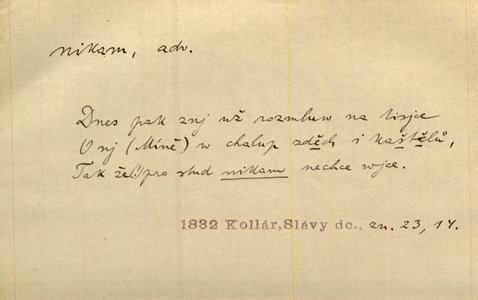 nikam, adv.
Dnes pak znj už rozmluw na tisjce
O nj (Míně) w chalup zděch i kaštělů,
Tak že(!) pro stud nikam nechce wjce.
1832 Kollár, Slávy dc., zn. 23, 14.